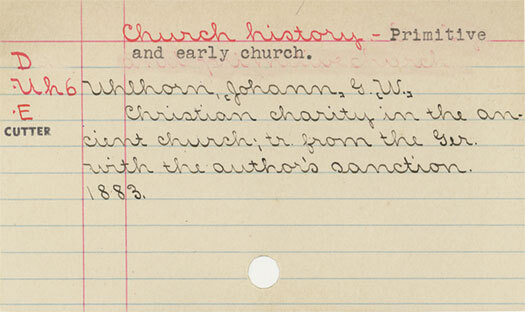 Church history - Primitive
and early church.
D
Uh6 Uhlhorn, Johann, G. W.,
E Christian charity in the an-
CUTTER
cient church; tr. from the Ger.
with the author's sanction.
1883.